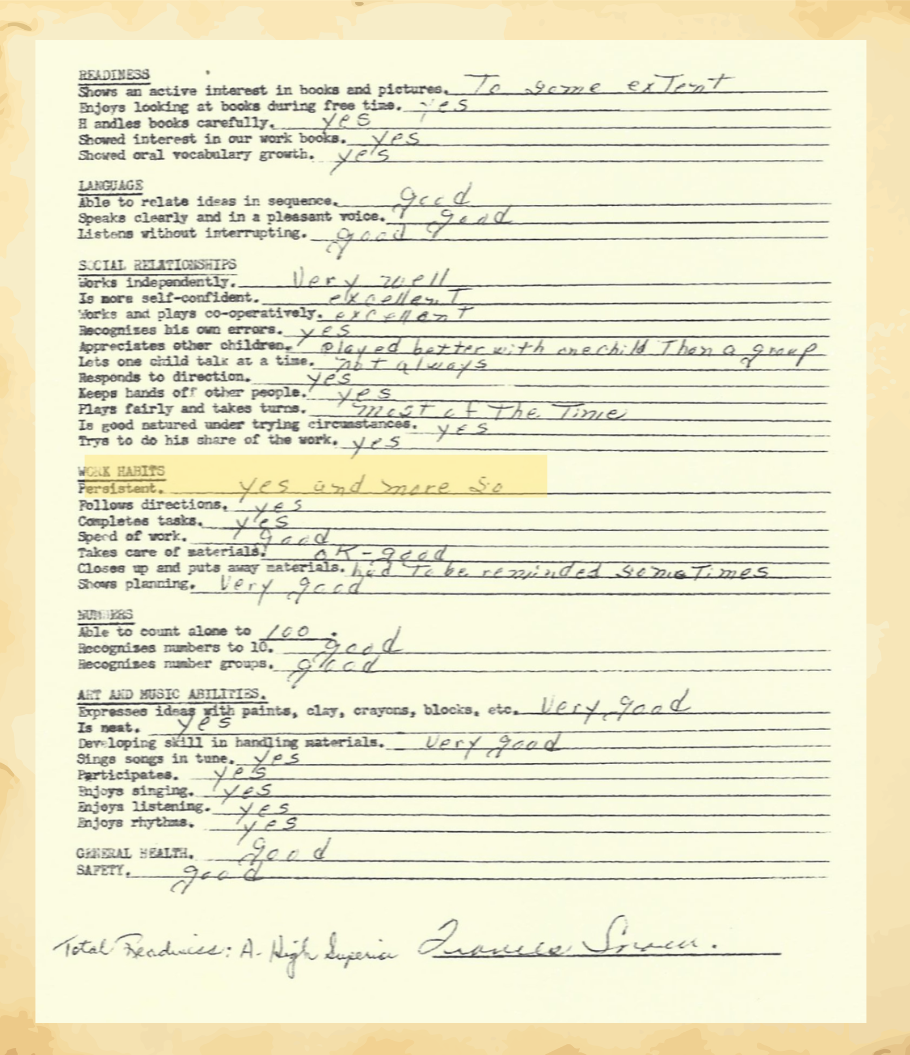 READINESS
Shows an active interest in books and pictures. To some extent
Enjoys looking at books during free time. yes
H andles books carefully. yes
Showed interest in our work books. yes
Showed oral vocabulary growth. yes
LANGUAGE
Able to relate ideas in sequence. good
Speaks clearly and in a pleasant voice. good
Listens without interrupting. good
SOCIAL RELATIONSHIPS
Works independently. Very well
Is more self-confident. excellent
Works and plays co-operatively. excellent
Recognizes his own errors. yes
Appreciates other children. played better with one child Than a group
Lets one child talk at a time. not always
Responds to direction. yes
Keeps hands off other people. yes
Plays fairly and takes turns. most of The Time
Is good natured under trying circumstances. yes
Trys to do his share of the work. yes
WORK HABITS
Persistent. yes and more so
Follows directions. yes
Completes tasks. yes
Speed of work. good
Takes care of materials. OK - good
Closes up and puts away materials. had To be reminded someTimes
Shows planning. Very good
NUMBERS
Able to count alone to 100.
Recognizes numbers to 10. good
Recognizes number groups. good
ART AND MUSIC ABILITIES.
Expresses ideas with paints, clay, crayons, blocks, etc. Very good
Is neat. yes
Developing skill in handling materials. Very good
Sings songs in tune. yes
Participates. yes
Enjoys singing. yes
Enjoys listening. yes
Enjoys rhythms. yes
GENERAL HEALTH. good
SAFETY. good
Total Readiness: A- High Superior Frances